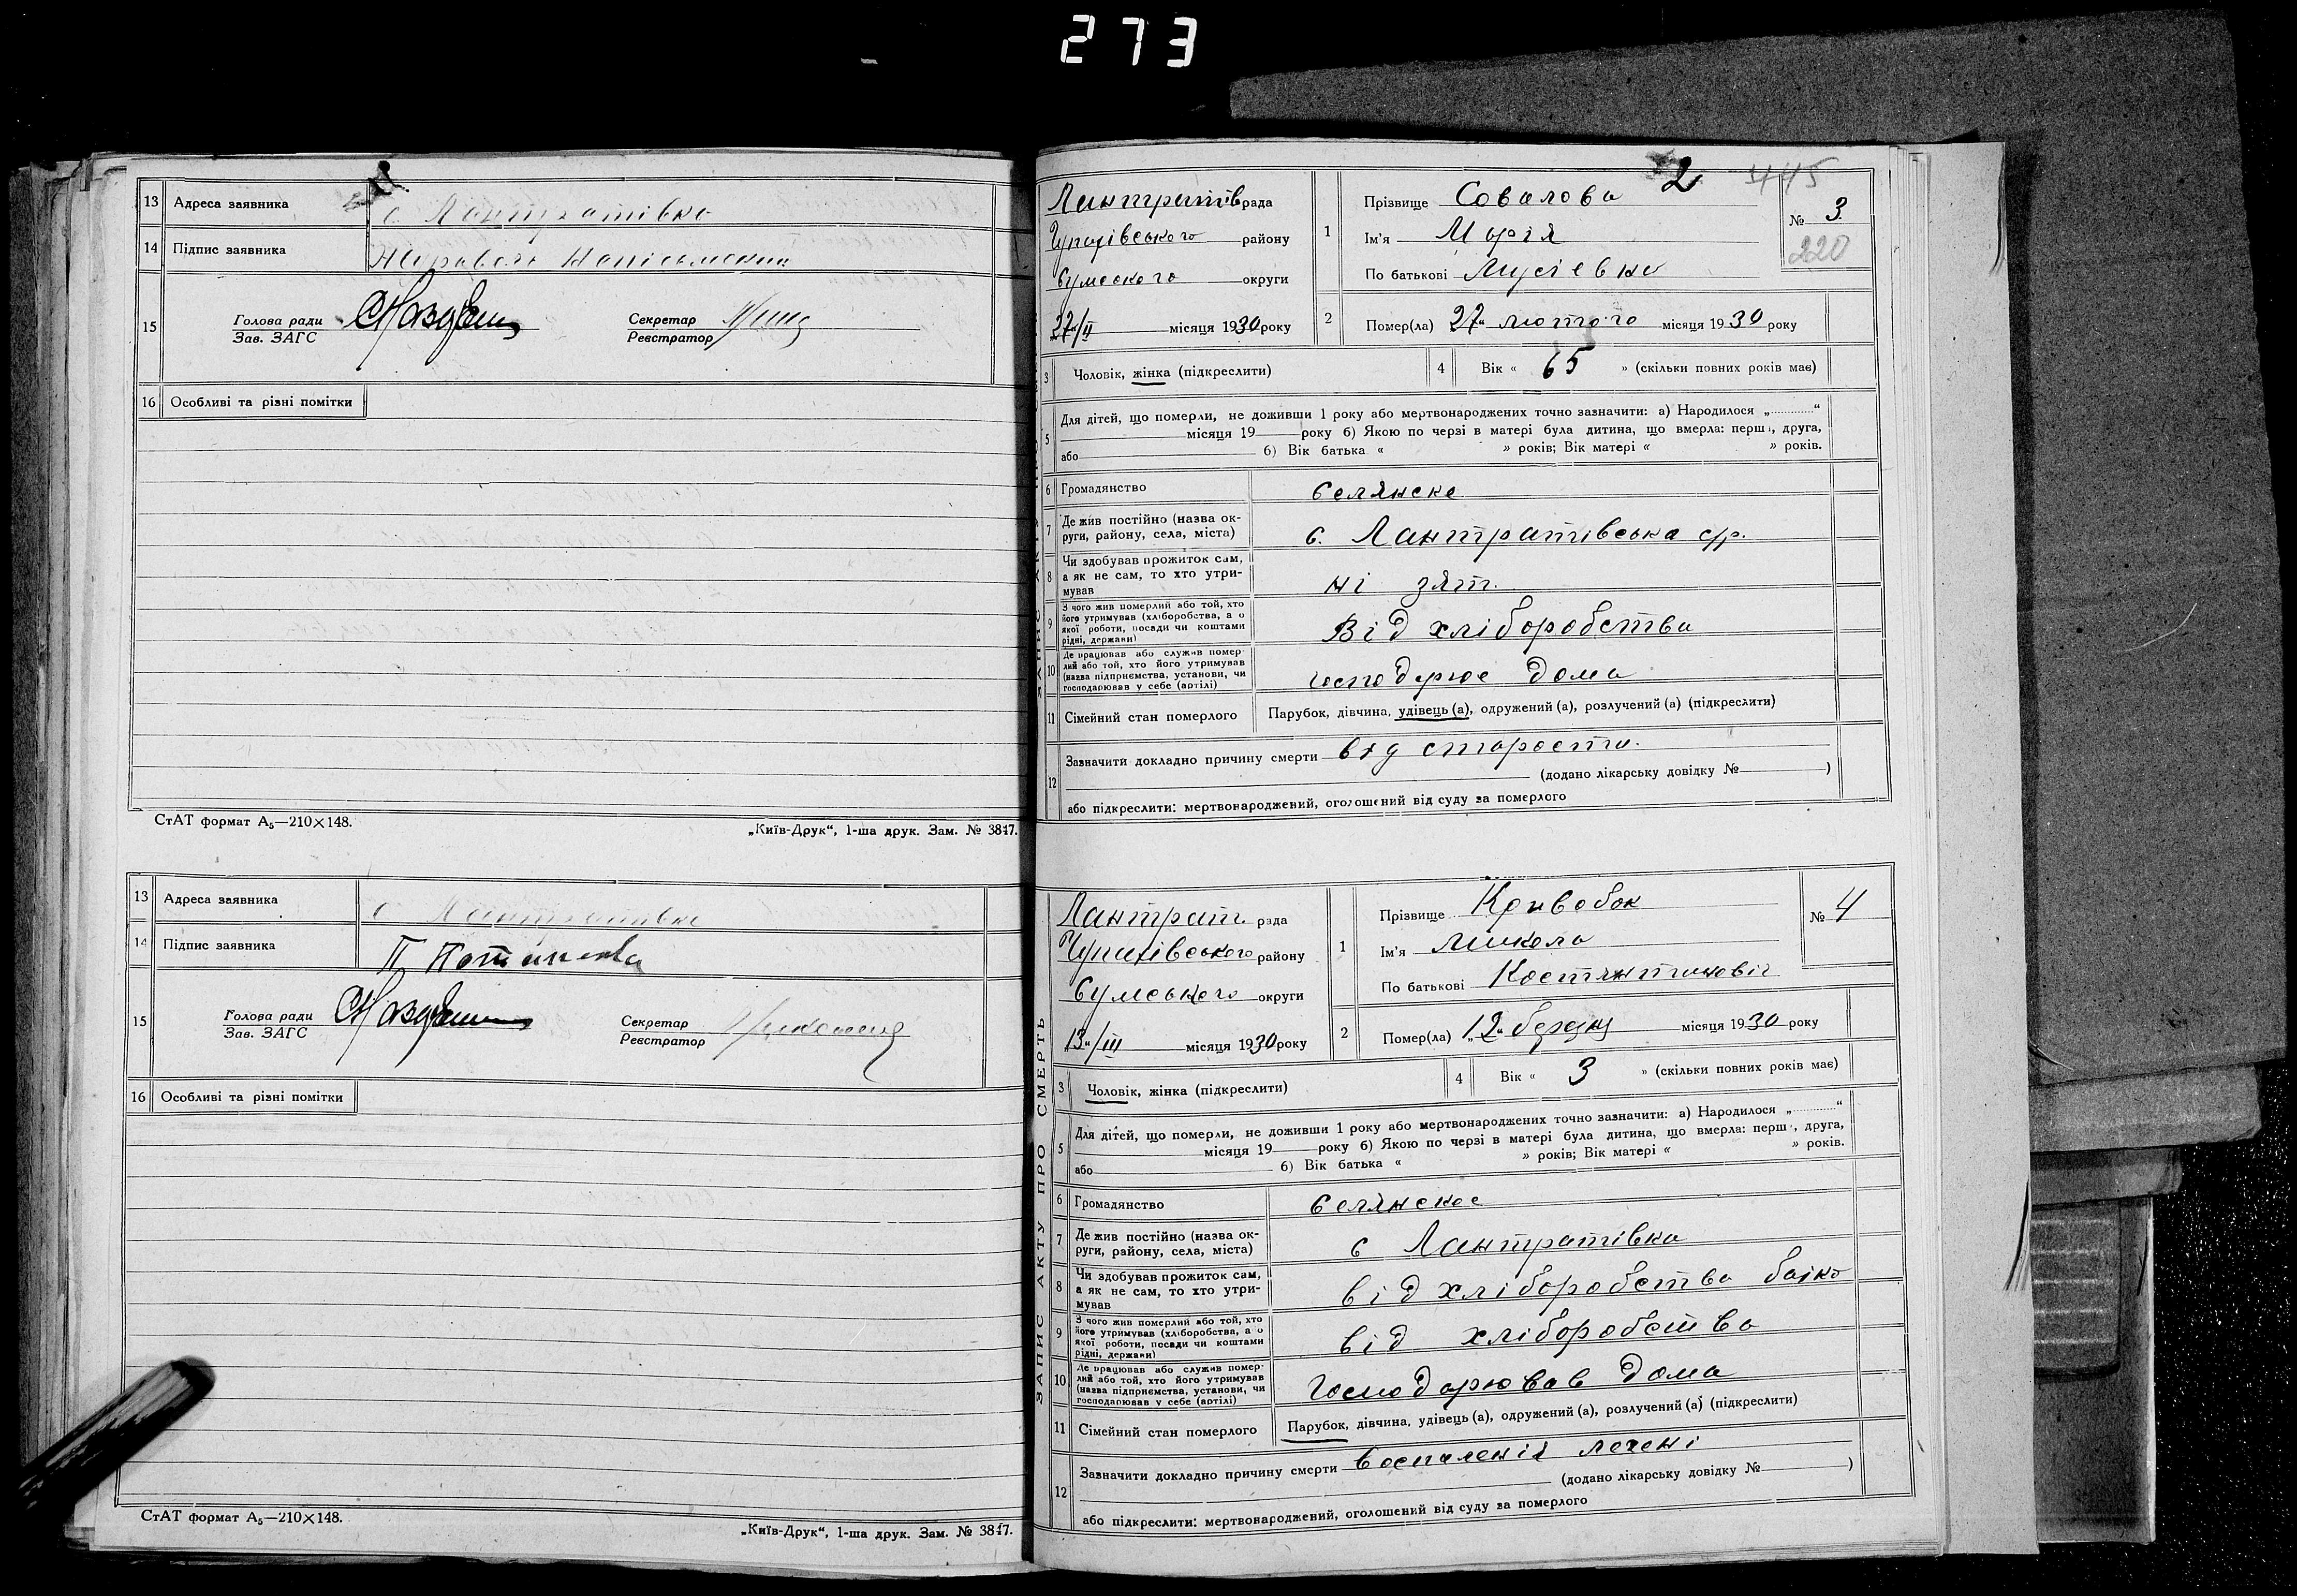 273
13 Адреса заявника с. Лантратівка
14 Підпис заявника
15 Голова ради Секретар
Зав. ЗАГС Реєстратор
16 Особливі та різні помітки
СтАТ формат А₅—210×148.
„Київ-Друк“, 1-ша друк. Зам. № 3847.
13 Адреса заявника с Лантратівка
14 Підпис заявника П
15 Голова ради Секретар
Зав. ЗАГС Реєстратор
16 Особливі та різні помітки
СтАТ формат А₅—210×148.
„Київ-Друк“, 1-ша друк. Зам. № 3847.
2 445
Лантратів рада
району
Сумського округи
27/II місяця 1930 року
1 Прізвище Совалова
Ім'я Марія
По батькові Мусієвна
№ 3
220
2 Помер(ла) 27" лютого місяця 1930 року
3 Чоловік, жінка (підкреслити) 4 Вік « 65 » (скільки повних років має)
5 Для дітей, що померли, не доживши 1 року або мертвонароджених точно зазначити: а) Народилося „............“
місяця 19 року б) Якою по черзі в матері була дитина, що вмерла: перша, друга,
або б) Вік батька « » років; Вік матері « » років.
6 Громадянство селянске
7 Де жив постійно (назва ок-
руги, району, села, міста) с. Лантратівська с/р.
8 Чи здобував прожиток сам,
а як не сам, то хто утри-
мував ні зят.
9 З чого жив померлий або той, хто
його утримував (хліборобства, а о
якої роботи, посади чи коштами
рідні, держави) Від хліборобства
10 Де працював або служив помер-
лий або той, хто його утримував
(назва підприємства, установи, чи
господарював у себе (артілі) господарює дома
11 Сімейний стан померлого Парубок, дівчина, удівець (а), одружений (а), розлучений (а) (підкреслити)
12 Зазначити докладно причину смерти від старости.
(додано лікарську довідку № )
або підкреслити: мертвонароджений, оголошений від суду за померлого
ЗАПИС АКТУ ПРО СМЕРТЬ
Лантрат. рада
району
Сумського округи
13"/III місяця 1930 року
1 Прізвище Кривобок
Ім'я Микола
По батькові Костянтиновіч
№ 4
2 Помер(ла) „12" березня місяця 1930 року
3 Чоловік, жінка (підкреслити) 4 Вік « 3 » (скільки повних років має)
5 Для дітей, що померли, не доживши 1 року або мертвонароджених точно зазначити: а) Народилося „............“
місяця 19 року б) Якою по черзі в матері була дитина, що вмерла: перша, друга,
або б) Вік батька « » років; Вік матері « » років.
6 Громадянство селянское
7 Де жив постійно (назва ок-
руги, району, села, міста) с Лантратівка
8 Чи здобував прожиток сам,
а як не сам, то хто утри-
мував від хліборобства
9 З чого жив померлий або той, хто
його утримував (хліборобства, а о
якої роботи, посади чи коштами
рідні, держави) від хліборобства
10 Де працював або служив помер-
лий або той, хто його утримував
(назва підприємства, установи, чи
господарював у себе (артілі) Господарював дома
11 Сімейний стан померлого Парубок, дівчина, удівець (а), одружений (а), розлучений (а) (підкреслити)
12 Зазначити докладно причину смерти воспаленія печені
(додано лікарську довідку № )
або підкреслити: мертвонароджений, оголошений від суду за померлого